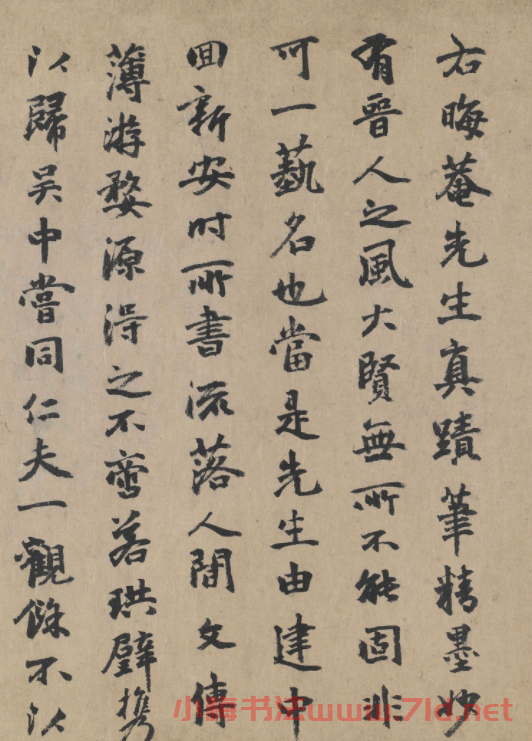 右晦菴先生真蹟筆精墨妙
有晉人之風大賢無所不能固非
可一藝名也當是先生由建中
回新安时所書流落人間文傳
薄游婺源得之不啻若珙璧携
以歸吴中嘗同仁夫一觀餘不以
小海书法www.7ld.net